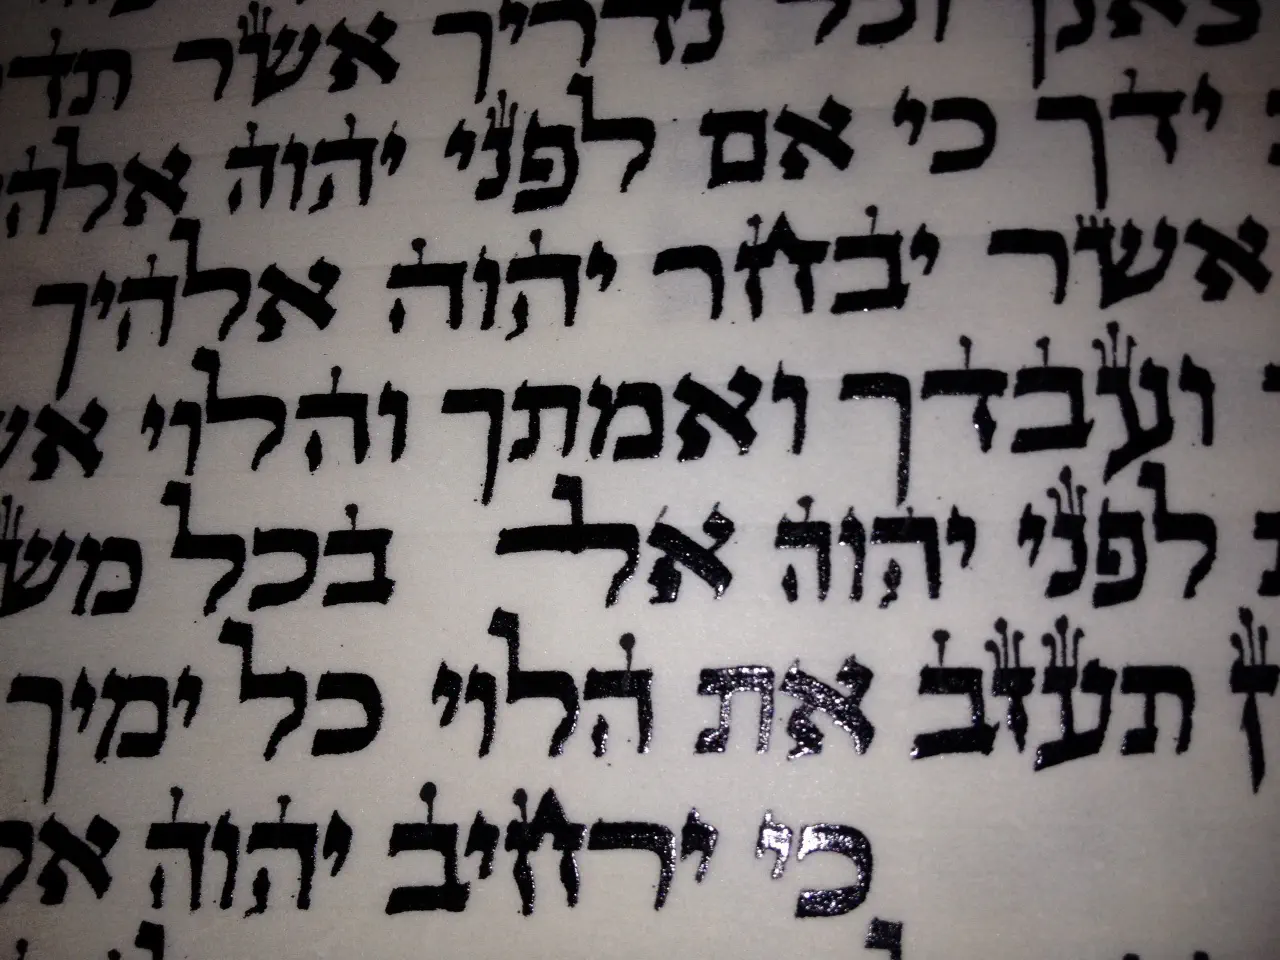 צאנך וכל נדריך אשר תד
ידך כי אם לפני יהוה אלהי
אשר יבחר יהוה אלהיך
ועבדך ואמתך והלוי אש
לפני יהוה אל בכל מש
ץ תעזב את הלוי כל ימיך
כי ירחיב יהוה אל